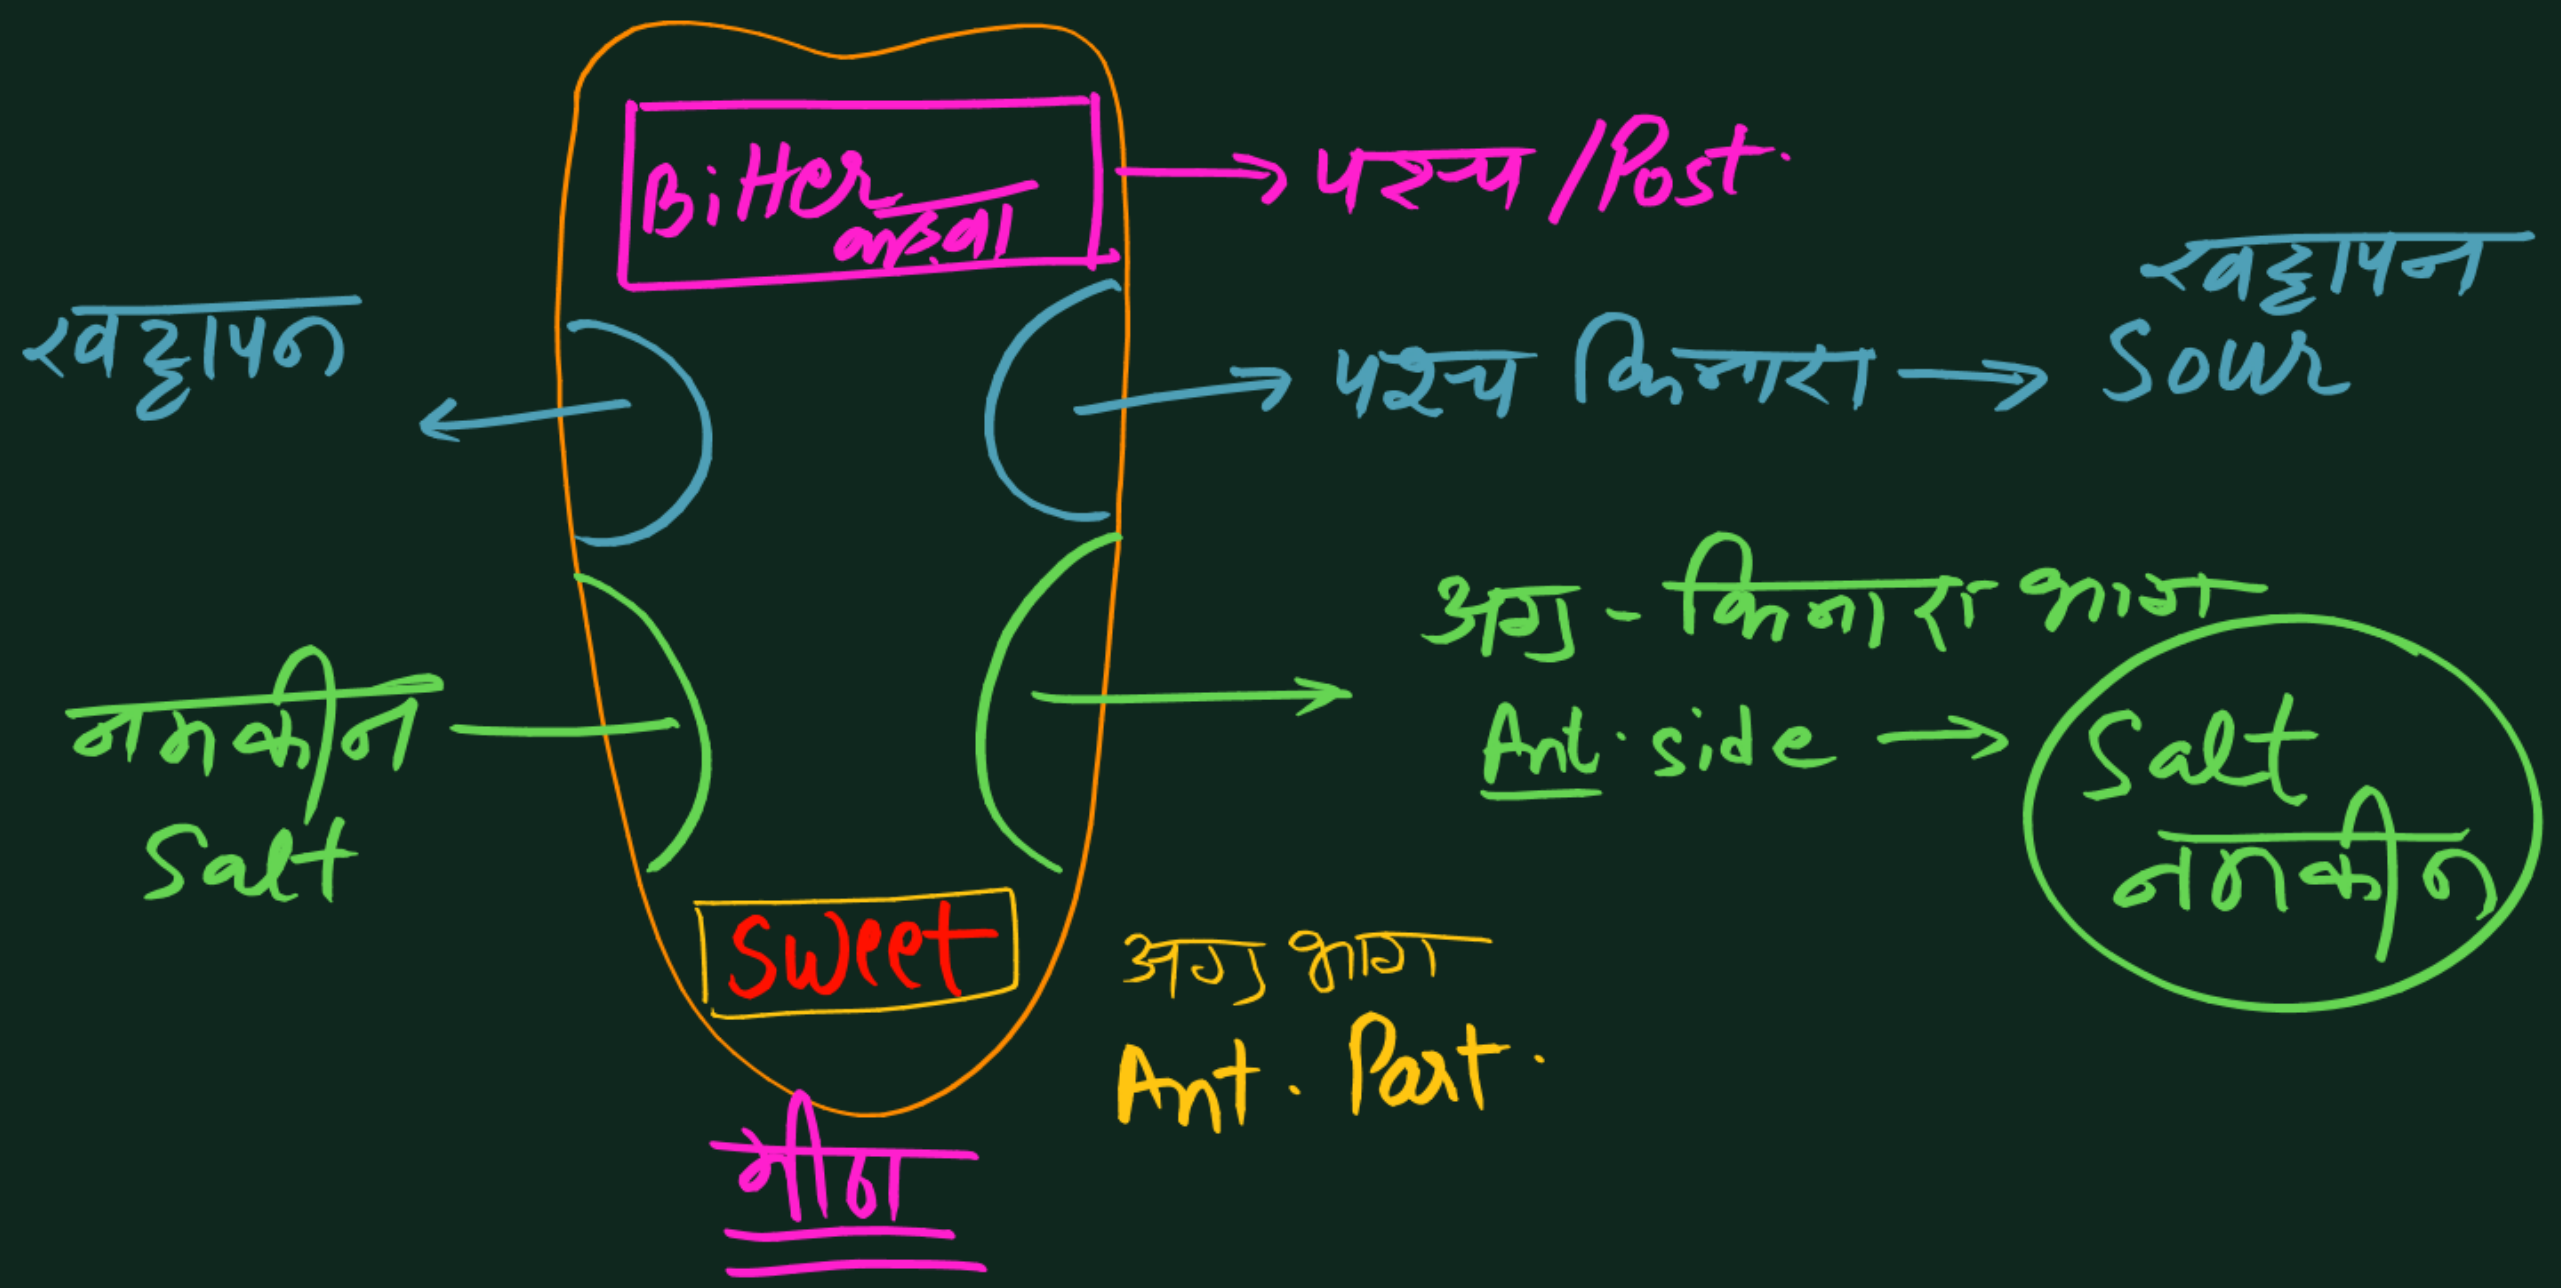 Bitter
कड़वा
पश्च /Post.
खट्टापन
खट्टापन
पश्च किनारा → Sour
अग्र - किनारा भाग
Ant. side → Salt
नमकीन
नमकीन
Salt
Sweet
अग्र भाग
Ant. Part.
मीठा